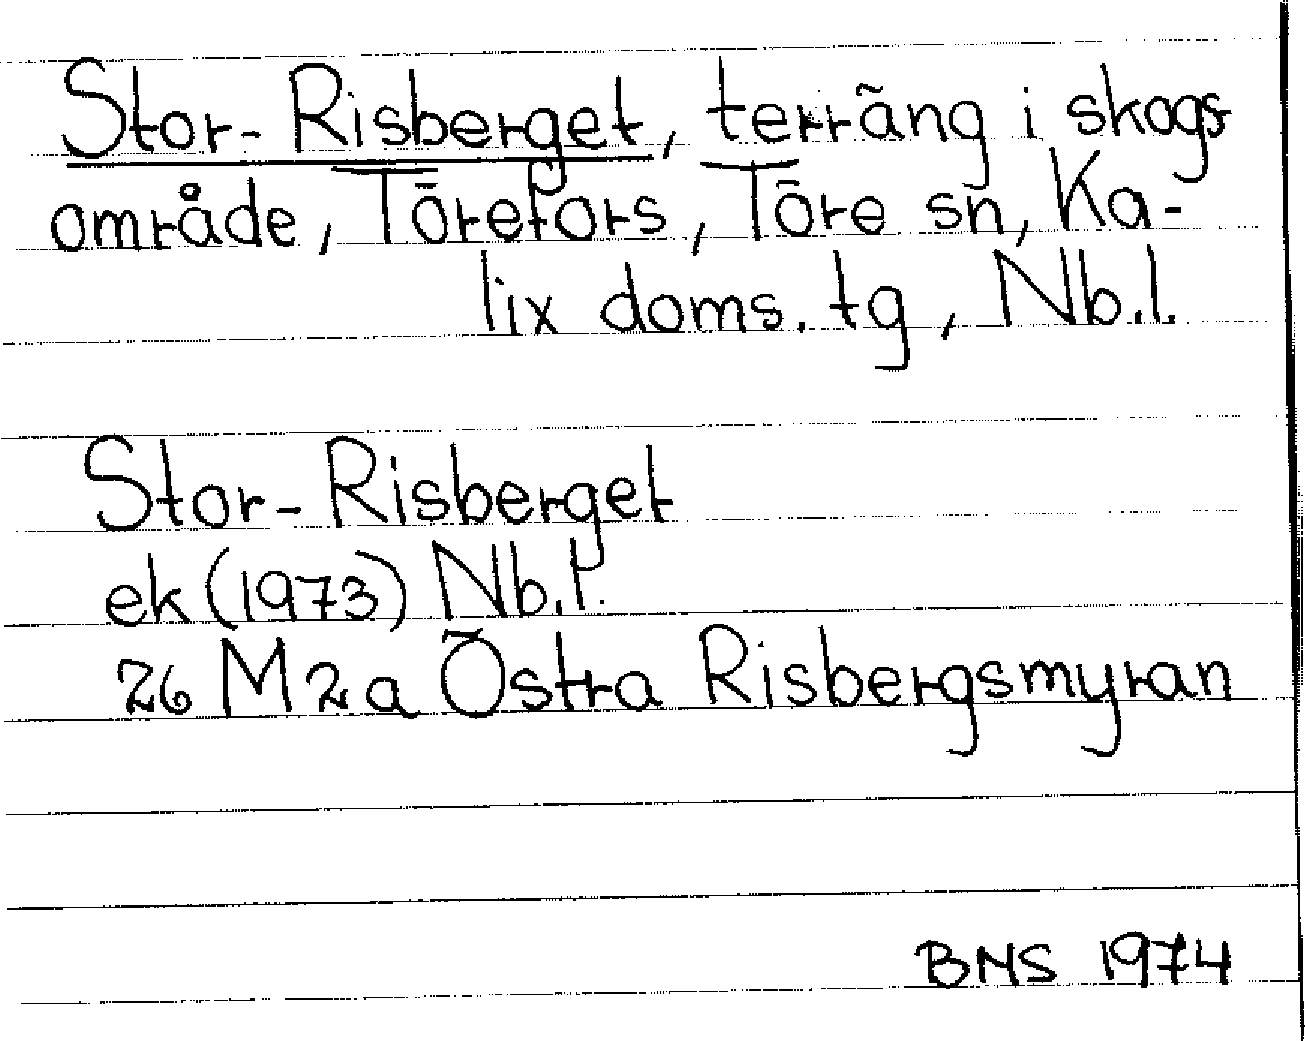 Stor-Risberget, terräng i skogs
område, Törefors, Töre sn, Ka-
lix doms. tg, Nb.l.
Stor-Risberget
ek (1973) Nb.l.
26 M 2a Östra Risbergsmyran
BNS 1974